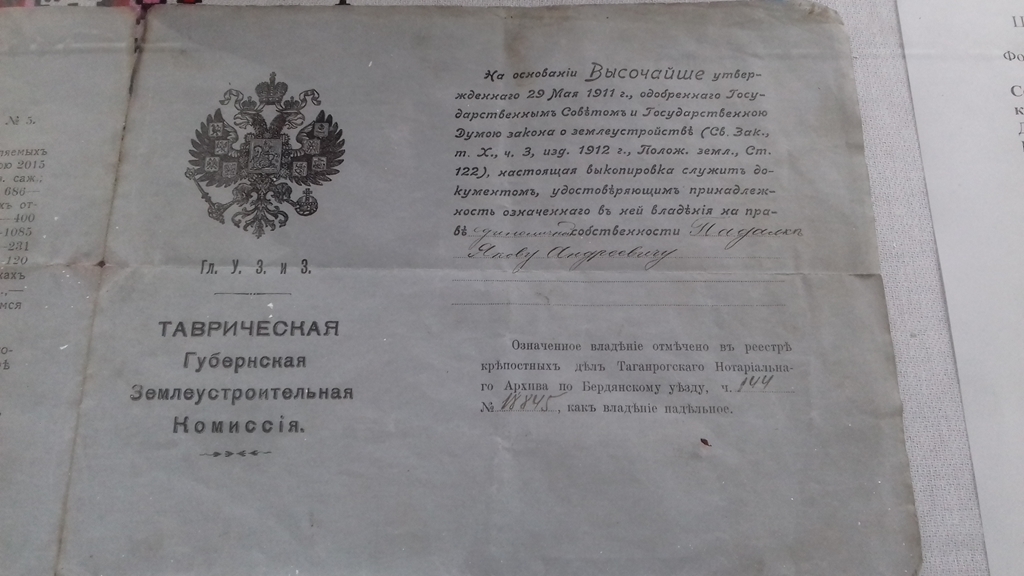 № 5.
2015
686—
—400
—1085
—231
—120
Гл. У. З. и З.
ТАВРИЧЕСКАЯ
Губернская
Землеустроительная
Комиссія.
На основаніи Высочайше утвер-
жденнаго 29 Мая 1911 г., одобреннаго Госу-
дарственнымъ Совѣтомъ и Государственною
Думою закона о землеустройствѣ (Св. Зак.,
т. X., ч. 3, изд. 1912 г., Полож. земл., Ст.
122), настоящая выкопировка служитъ до-
кументомъ, удостовѣряющимъ принадлеж-
ность означеннаго въ ней владѣнія на пра-
вѣ единоличной собственности Падалкѣ
Якову Андреевичу
Означенное владѣніе отмѣчено въ реестрѣ
крѣпостныхъ дѣлъ Таганрогскаго Нотаріальна-
го Архива по Бердянскому уѣзду, ч. 144
№ 18845, какъ владѣніе надѣльное.